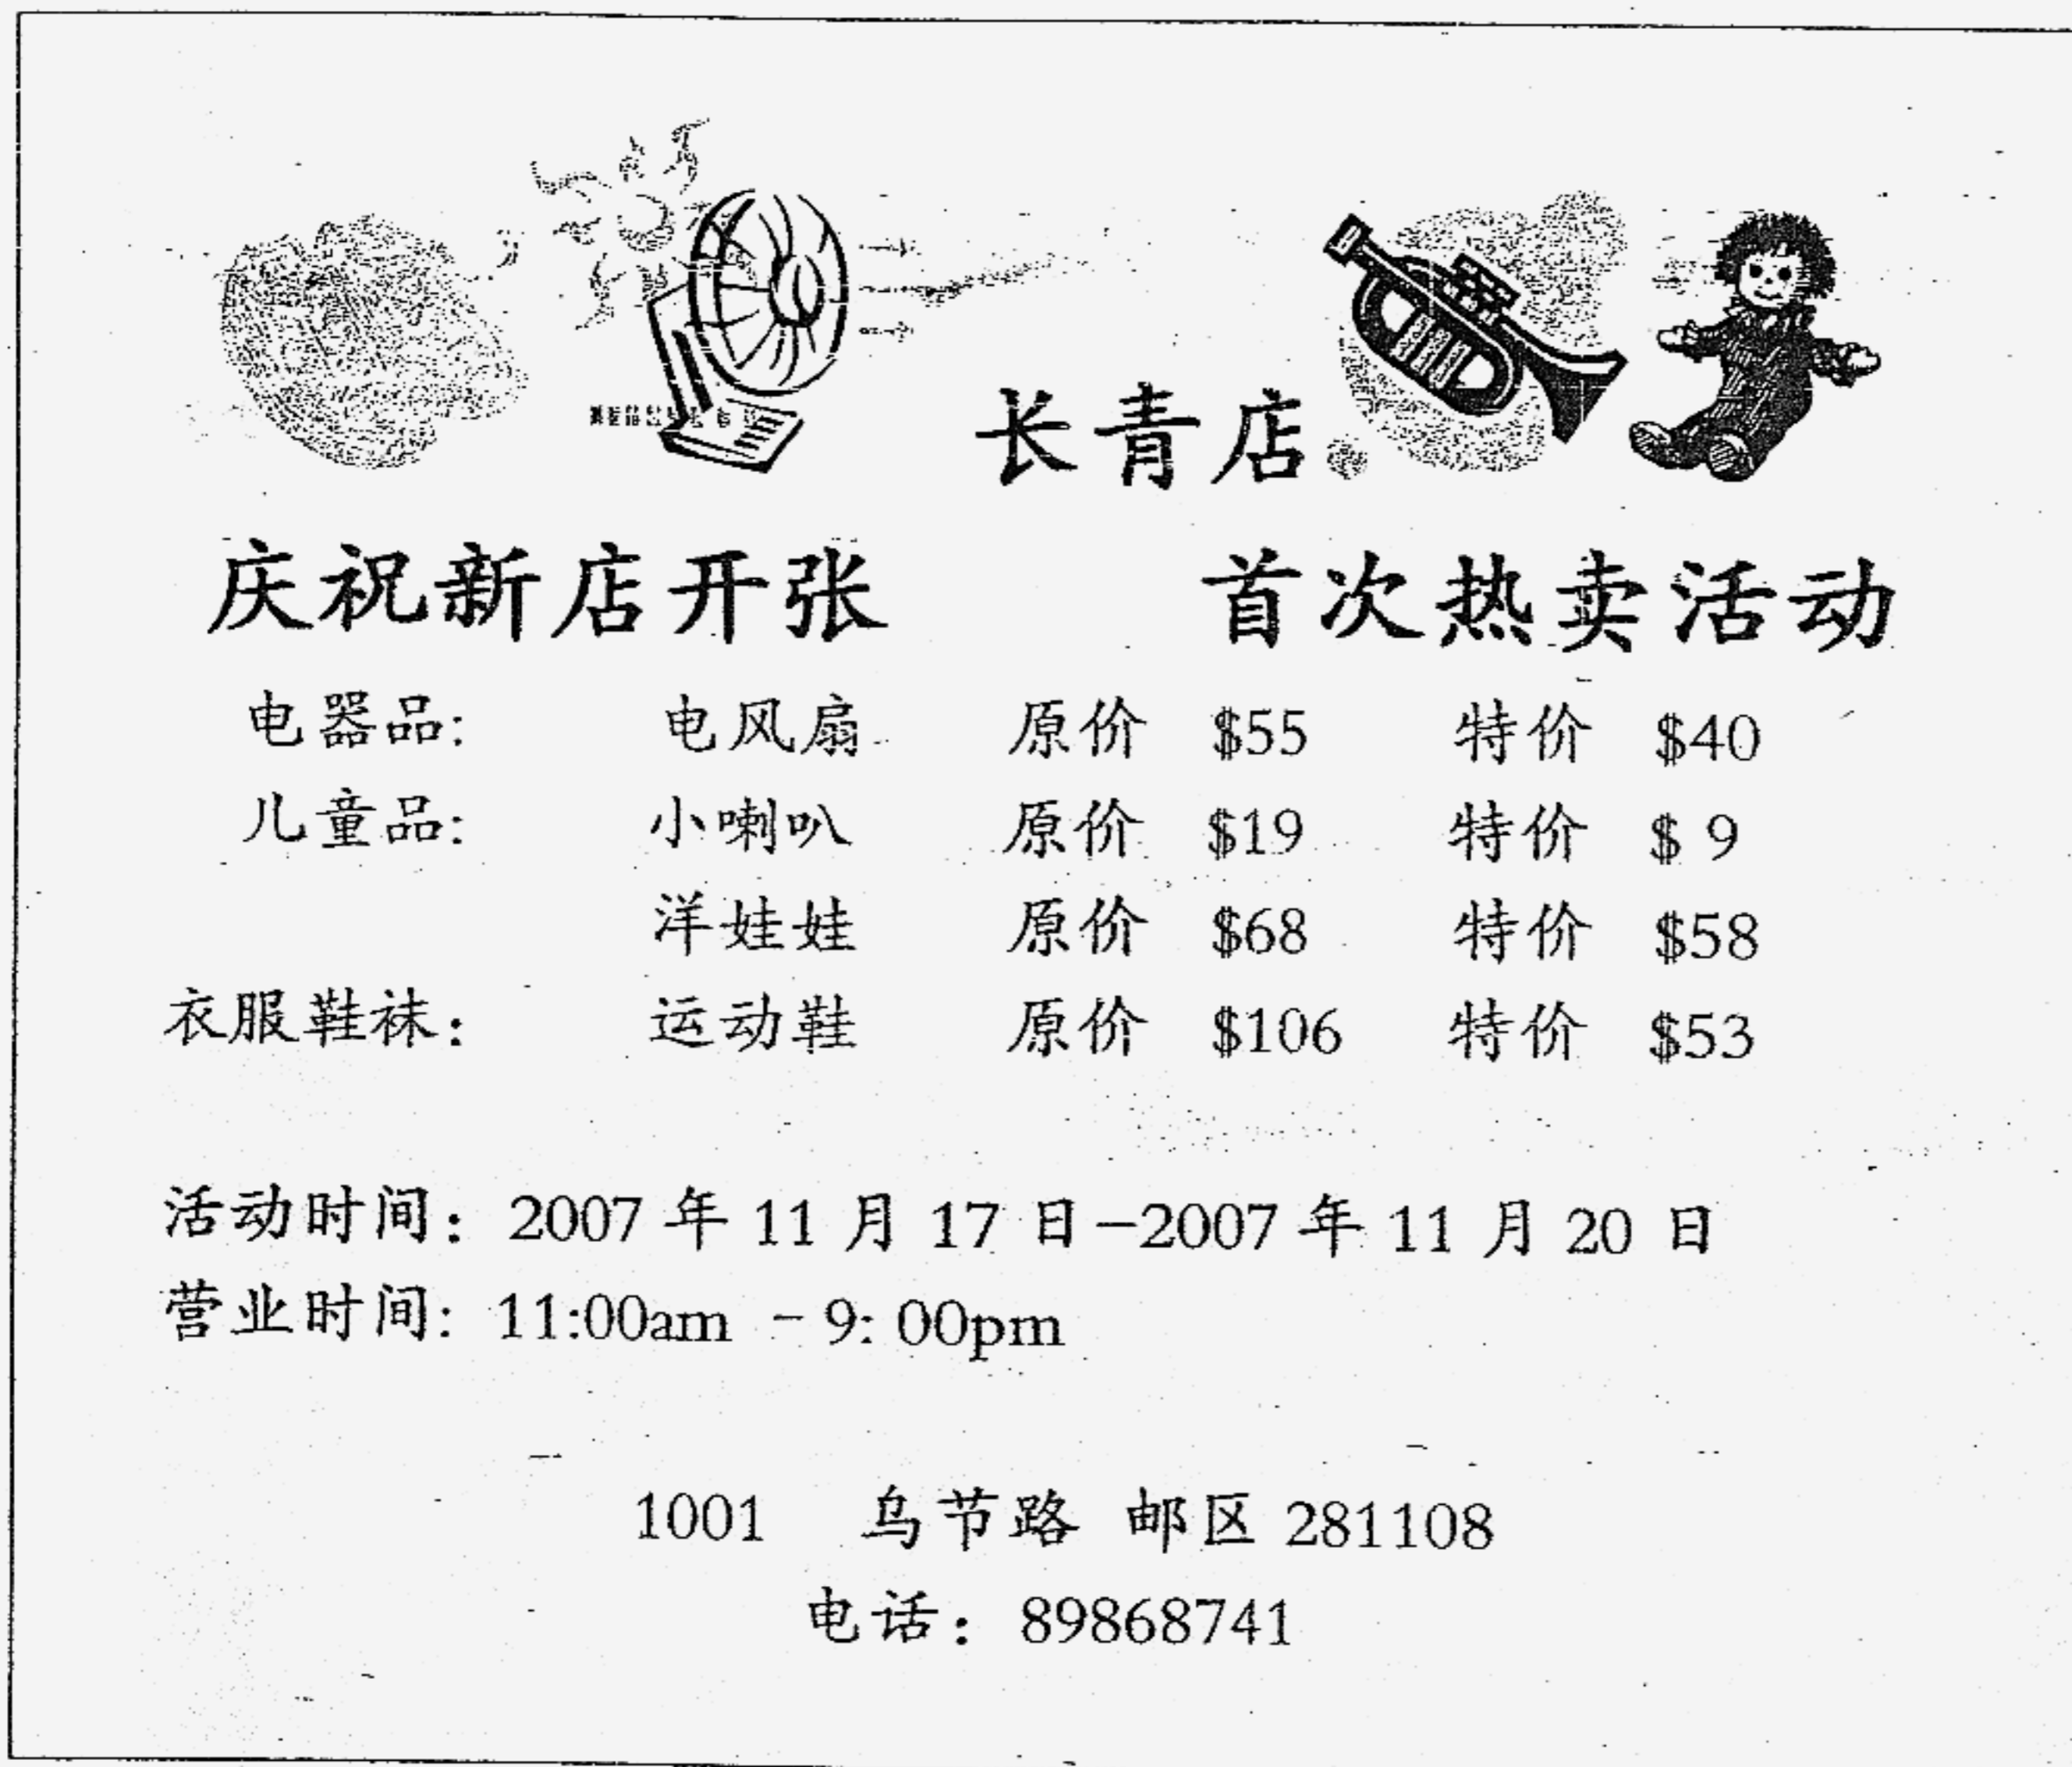 长青店
庆祝新店开张 首次热卖活动
电器品: 电风扇 原价 $55 特价 $40
儿童品: 小喇叭 原价 $19 特价 $ 9
洋娃娃 原价 $68 特价 $58
衣服鞋袜： 运动鞋 原价 $106 特价 $53
活动时间：2007 年 11 月 17 日–2007 年 11 月 20 日
营业时间: 11:00am – 9: 00pm
1001 乌节路 邮区 281108
电话：89868741